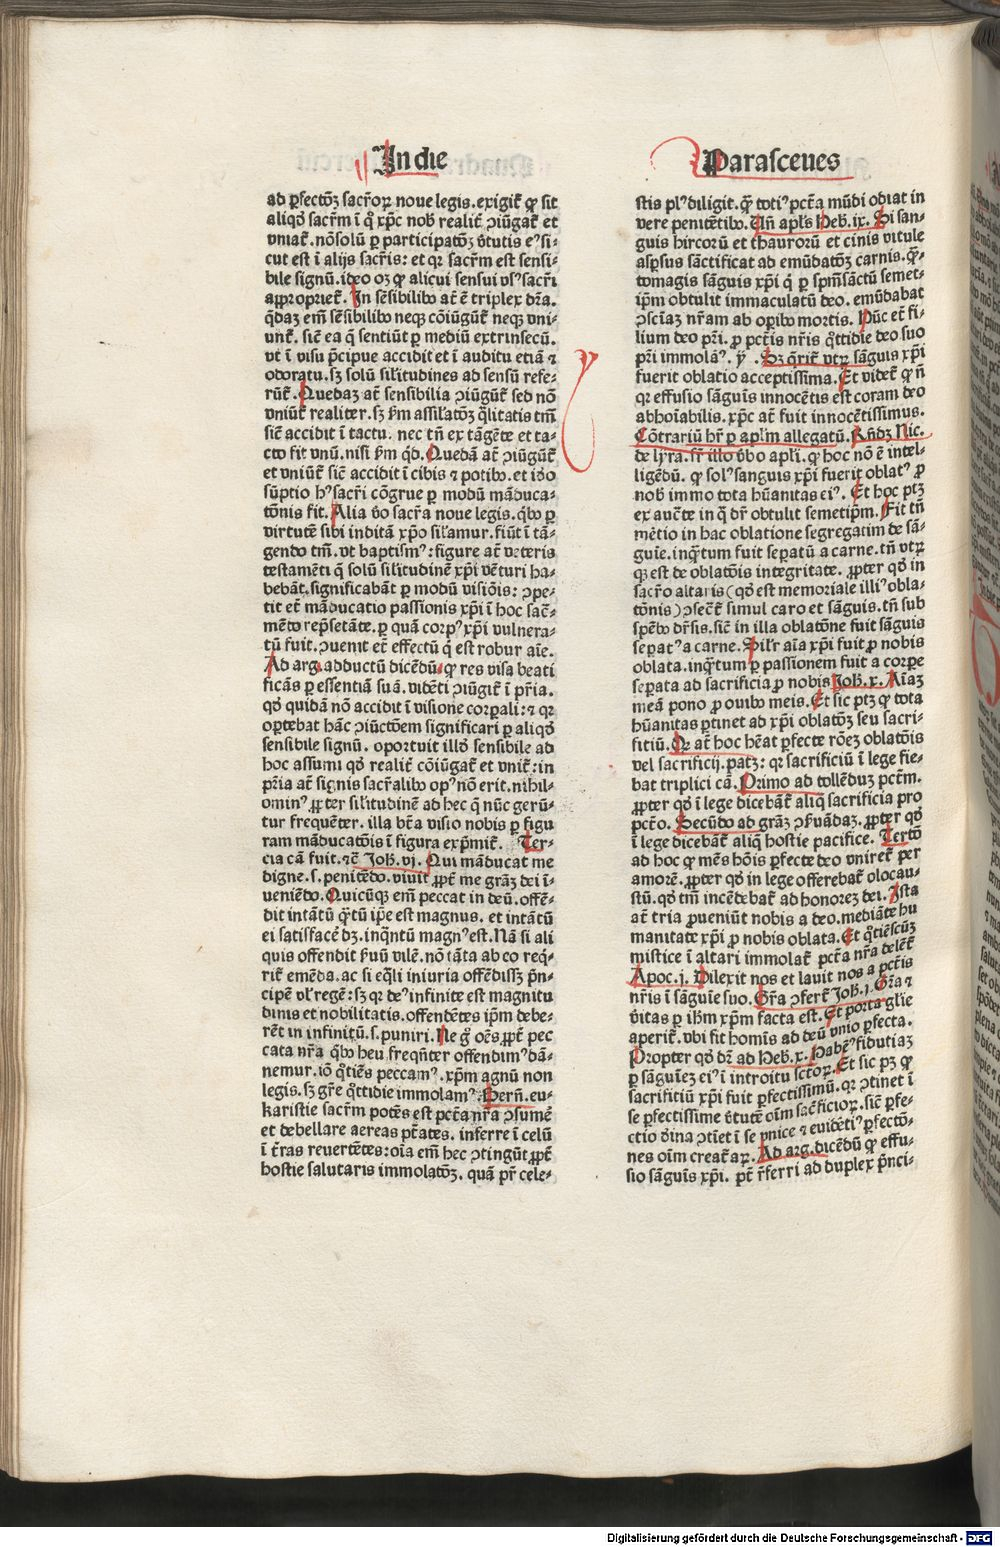 In die
Parasceues
ad ꝑfectōꝫ sacr̄oꝝ noue legis. exigit̄ ꝙ sit
aliqḋ sacr̄m ī q̇ xp̄c nob̄ realit̄ ꝯiūgat̄ et
vniat̄. nōsolū ꝑ participatōꝫ v̇tutis eꝰ si-
cut est ī alijs sacr̄is: et qꝛ sacr̄m est sensi-
bile signū. ideo oꝫ ꝙ alicui sensui vsꝰ sacr̄i
appropriet̄. In sēsibilibꝰ at̄ ē triplex dr̄a.
q̄daꝫ em̄ sēsibilibꝰ neqꝫ cōiūgūt̄ neqꝫ vni-
unt̄. sic̄ ea q̄ sentiūt̄ ꝑ mediū extrinsecū.
vt ī visu p̄cipue accidit et ī auditu etiā ⁊
odoratu. sꝫ solū sil̄itudines ad sensū refe-
rūt̄. Quedaꝫ at̄ sensibilia ꝯiūgūt̄ sed nō
vniūt̄ realiter. sꝫ ẜm assil̄atōꝫ q̄litatis tm̄
sic̄ accidit ī tactu. nec tn̄ ex tāgēte et ta-
cto fit vnū. nisi ẜm qḋ. Quedā at̄ ꝯiūgūt̄
et vniūt̄ sic̄ accidit ī cibis ⁊ potibꝰ. et iḋo
sūptio hꝰ sacr̄i cōgrue ꝑ modū māduca-
tōnis fit. Alia v̇o sacr̄a noue legis. qbꝰ ꝑ
virtutē sibi inditā xp̄o sil̄amur. fiūt ī tā-
gendo tm̄. vt baptismꝰ: figure at̄ veteris
testamēti q̄ solū sil̄itudinē xp̄i vēturi ha-
bebāt. significabāt ꝑ modū visiōis: ꝯpe-
tit et̄ māducatio passionis xp̄i ī hoc sacr̄-
mēto rep̄setāte. ꝑ quā corpꝰ xp̄i vulnera-
tū fuit. ꝯuenit et̄ effectū q̇ est robur aīe.
Ad arg. adductū dicēdū. ꝙ res visa beati
ficās ꝑ essentiā suā. vidēti ꝯiūgit̄ ī pr̄ia.
qḋ quidā nō accidit ī visione corꝑali: ⁊ qꝛ
oꝑtebat hāc ꝯiūctōem significari ꝑ aliqḋ
sensibile signū. oportuit illḋ sensibile ad
hoc assumi qḋ realit̄ cōiūgat̄ et vnit̄: in
pr̄ia at̄ signis sacr̄alibꝰ opꝰ nō erit. nihil-
ominꝰ ꝓpter sil̄itudinē ad hec q̄ nūc gerū-
tur frequēter. illa bt̄a visio nobis ꝑ figu
ram māducatōis ī figura exp̄mit̄. Ter-
cia cā fuit. ⁊c̄ Joh̄. vj. Qui māducat me
digne. s. penitēdo. viuit ꝓpt̄ me grāꝫ dei ī-
ueniēdo. Quicūqꝫ em̄ peccat in deū. offē-
dit intātū q̄tū ip̄e est magnus. et intātū
ei satisfacē dꝫ. inq̄ntū magnꝰ est. Nā si ali
quis offendit ẜuū vilē. nō tāta ab eo req̄-
rit̄ emēda. ac si eq̄li iniuria offēdissꝫ p̄n-
cipē vl̄ regē: sꝫ qꝛ deꝰ infinite est magnitu
dinis et nobilitatis. offendētes ip̄m debe-
rēt in infinitū. s. puniri. Ne g̊ oēs ꝓpt̄ pec
cata nr̄a qbꝰ heu freqn̄ter offendimꝰ dā-
nemur. iō q̄tiēs peccamꝰ. xp̄m agnū non
legis. sꝫ gr̄e q̄ttidie immolamꝰ. Hern̄. eu-
karistie sacr̄m potēs est pctā nr̄a ꝯsumē
et debellare aereas pt̄ates. inferre ī celū
ī t̄ras reuertētes: oīa em̄ hec ꝯtingūt ꝓpt̄
hostie salutaris immolatōꝫ. quā pr̄ cele-
stis plꝰ diligit. q̄ totiꝰ pctā mūdi obiat in
vere penitētibꝰ. Un̄ apl̄s Heb̄. ix. Si san-
guis hircorū et thaurorū et cinis vitule
aspsus sāctificat ad emūdatōꝫ carnis. q̄-
tomagis sāguis xp̄i q̇ ꝑ spm̄sāctū semet-
ip̄m obtulit immaculatū deo. emūdabat
ꝯsciaꝫ nr̄am ab oꝑibꝰ mortis. Hūc et̄ fi-
lium deo pr̄i. ꝓ pctīs nr̄is q̄ttidie deo suo
pr̄i immolāꝰ. ꝟ. Sꝫ q̄rit̄ vtꝝ sāguis xp̄i
fuerit oblatio acceptissima. Et videt̄ ꝙ n̄
qꝛ effusio sāguīs innocētis est coram deo
abhoīabilis. xp̄c at̄ fuit innocētissimus.
Cōtrariū hr̄ ꝑ apl̄m allegatū. Rn̄dꝫ Nic.
de lyra. sr̄ illo v̇bo apl̄i. ꝙ hoc nō ē intel-
ligēdū. ꝙ solꝰ sanguis xp̄i fuerit oblatꝰ ꝓ
nob̄ immo tota hūanitas eiꝰ. Et hoc ptꝫ
ex auc̄te in q̄ dr̄ obtulit semetip̄m. Fit tn̄
mētio in hac oblatione segregatim de sā-
guīe. inq̄tum fuit sepatū a carne. tn̄ vtꝝ
qꝫ est de oblatōis integritate. ꝓpter qḋ in
sacr̄o altaris (qḋ est memoriale illiꝰ obla-
tōnis) ꝯsec̄t̄ simul caro et sāguis. tn̄ sub
spēbꝰ dr̄sis. sic̄ in illa oblatōne fuit sāguis
sepatꝰ a carne. Sil̄r aīa xp̄i fuit ꝓ nobis
oblata. inq̄tum ꝑ passionem fuit a corpe
sepata ad sacrificia ꝓ nobis Joh̄. x. Aīaꝫ
meā pono ꝓ ouibꝰ meis. Et sic ptꝫ ꝙ tota
hūanitas ꝑtinet ad xp̄i oblatōꝫ seu sacri-
fitiū. Qꝛ at̄ hoc hēat ꝑfecte rōeꝫ oblatōis
vel sacrificij. patꝫ: qꝛ sacrificiū ī lege fie-
bat triplici cā. Primo ad tollēduꝫ pctm̄.
ꝓpter qḋ ī lege dicebāt̄ aliq̄ sacrificia pro
pctō. Secūdo ad grāꝫ ꝯẜuādaꝫ. ꝓpter qḋ
ī lege dicebāt̄ aliq̄ hostie pacifice. Tertō
ad hoc ꝙ mēs hōis ꝑfecte deo vniret̄ per
amorē. ꝓpter qḋ in lege offerebat̄ olocau-
stū. qḋ tm̄ incēdebat̄ ad honoreꝫ dei. Ista
at̄ tria ꝓueniūt nobis a deo. mediāte hu
manitate xp̄i ꝓ nobis oblata. Et q̄tiēscūꝫ
mistice ī altari immolat̄ pctā nr̄a delēt̄
Apoc. j. Dilexit nos et lauit nos a pctīs
nr̄is ī sāguīe suo. Gr̄a ꝯfert̄ Joh̄. j. Gr̄a ⁊
v̇itas ꝑ ih̄m xp̄m facta est. Et porta gl̄ie
aperit̄. vbi fit homīs ad deū vnio ꝑfecta.
Propter qḋ dr̄ ad Heb̄. x. Habēꝰ fidutiaꝫ
ꝑ sāguīeꝫ eiꝰ ī introitu sctōꝝ. Et sic pꝫ ꝙ
sacrifitiū xp̄i fuit ꝑfectissimū. qꝛ ꝯtinet ī
se ꝑfectissime v̇tutē oīm sacr̄ficioꝝ. sic̄ ꝑfe-
ctio v̇ina ꝯtīet ī se vnice ⁊ euidētiꝰ ꝑfectō-
nes oīm creat̄aꝝ. Ad arg. dicēdū ꝙ effu-
sio sāguīs xp̄i. pt̄ r̄ferri ad duplex p̄nci-
Digitalisierung gefördert durch die Deutsche Forschungsgemeinschaft - DFG